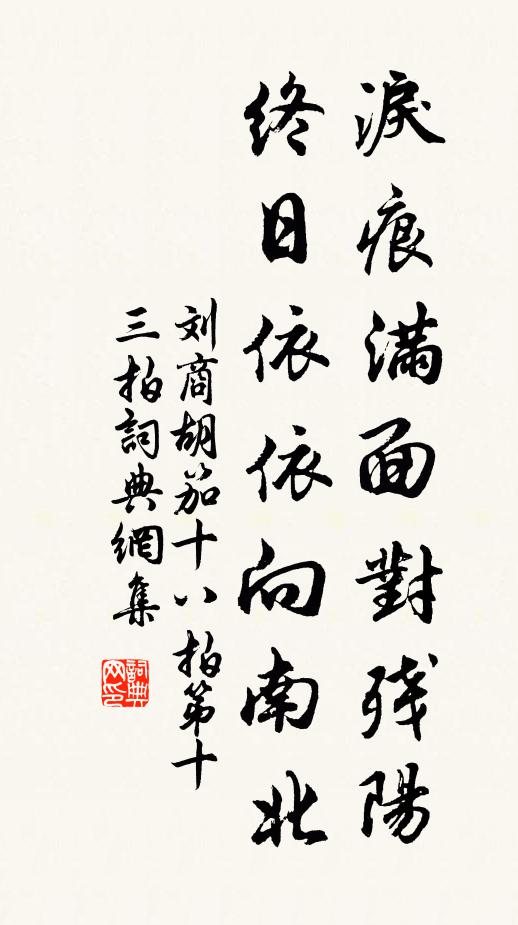 淚痕滿面對残陽
终日依依向南北
刘商胡笳十八拍第十
三拍詞典網集
詞典网印